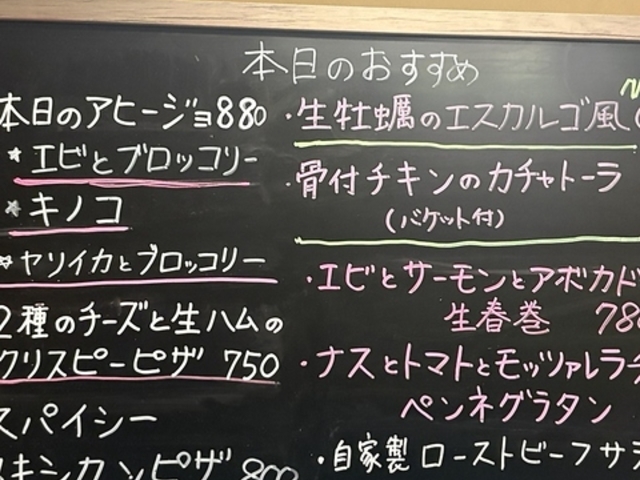 本日のおすすめ
本日のアヒージョ880
*エビとブロッコリー
*キノコ
*ヤリイカとブロッコリー
2種のチーズと生ハムの
クリスピーピザ 750
スパイシー
キシカンピザ 800
・生牡蠣のエスカルゴ風
・骨付チキンのカチャトーラ
(バケット付)
・エビとサーモンとアボカド
生春巻 78
・ナスとトマトとモッツァレラ
ペンネグラタン
・自家製ローストビーフサラ